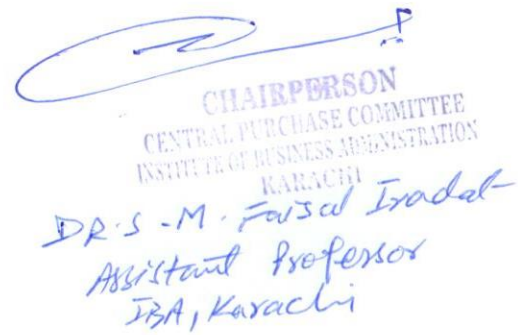 CHAIRPERSON
CENTRAL PURCHASE COMMITTEE
INSTITUTE OF BUSINESS ADMINISTRATION
KARACHI
DR. S - M. Faisal Iradat
Assistant Professor
IBA, Karachi